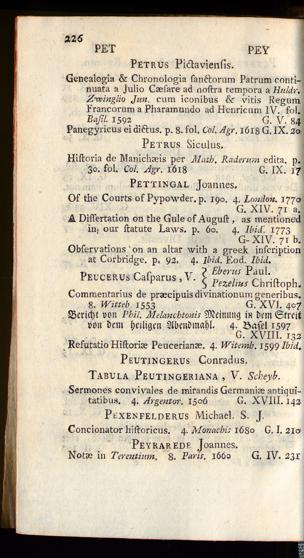 226
PET PEY
PETRUS Pictaviensis.
Genealogia & Chronologia sanctorum Patrum conti-
nuata a Julio Cæsare ad nostra tempora a Huldr.
Zwinglio Jun. cum iconibus & vitis Regum
Francorum a Pharamundo ad Henricum IV. fol.
Basil. 1592 G. V. 84
Panegyricus ei dictus. p. 8. fol. Col. Agr. 1618 G. IX. 20
PETRUS Siculus.
Historia de Manichæis per Math. Raderum edita. p.
30. fol. Col. Agr. 1618 G. IX. 17
PETTINGAL Joannes.
Of the Courts of Pypowder. p. 190. 4. London. 1770
G. XIV. 71 a.
A Dissertation on the Gule of August, as mentioned
in our statute Laws. p. 60. 4. Ibid. 1773
G. XIV. 71 b.
Observations on an altar with a greek inscription
at Corbridge. p. 92. 4. Ibid. Eod. Ibid.
PEUCERUS Casparus, V. { Eberus Paul.
Pezelius Christoph.
Commentarius de præcipuis divinationum generibus.
8. Witteb 1553 G. XVI. 407
Bericht von Phil. Melanchtonis Meinung in dem Streit
von dem heiligen Abendmahl. 4. Basel 1597
G. XVIII. 132
Refutatio Historiæ Peucerianæ. 4. Witemb. 1599 Ibid.
PEUTINGERUS Conradus.
TABULA PEUTINGERIANA, V. Scheyb.
Sermones convivales de mirandis Germaniæ antiqui-
tatibus. 4. Argentor. 1506 G. XVIII. 142
PEXENFELDERUS Michael. S. J.
Concionator historicus. 4. Monachii 1680 G. I. 210
PEYRAREDE Joannes.
Notæ in Terentium. 8. Paris. 1660 G. IV. 231